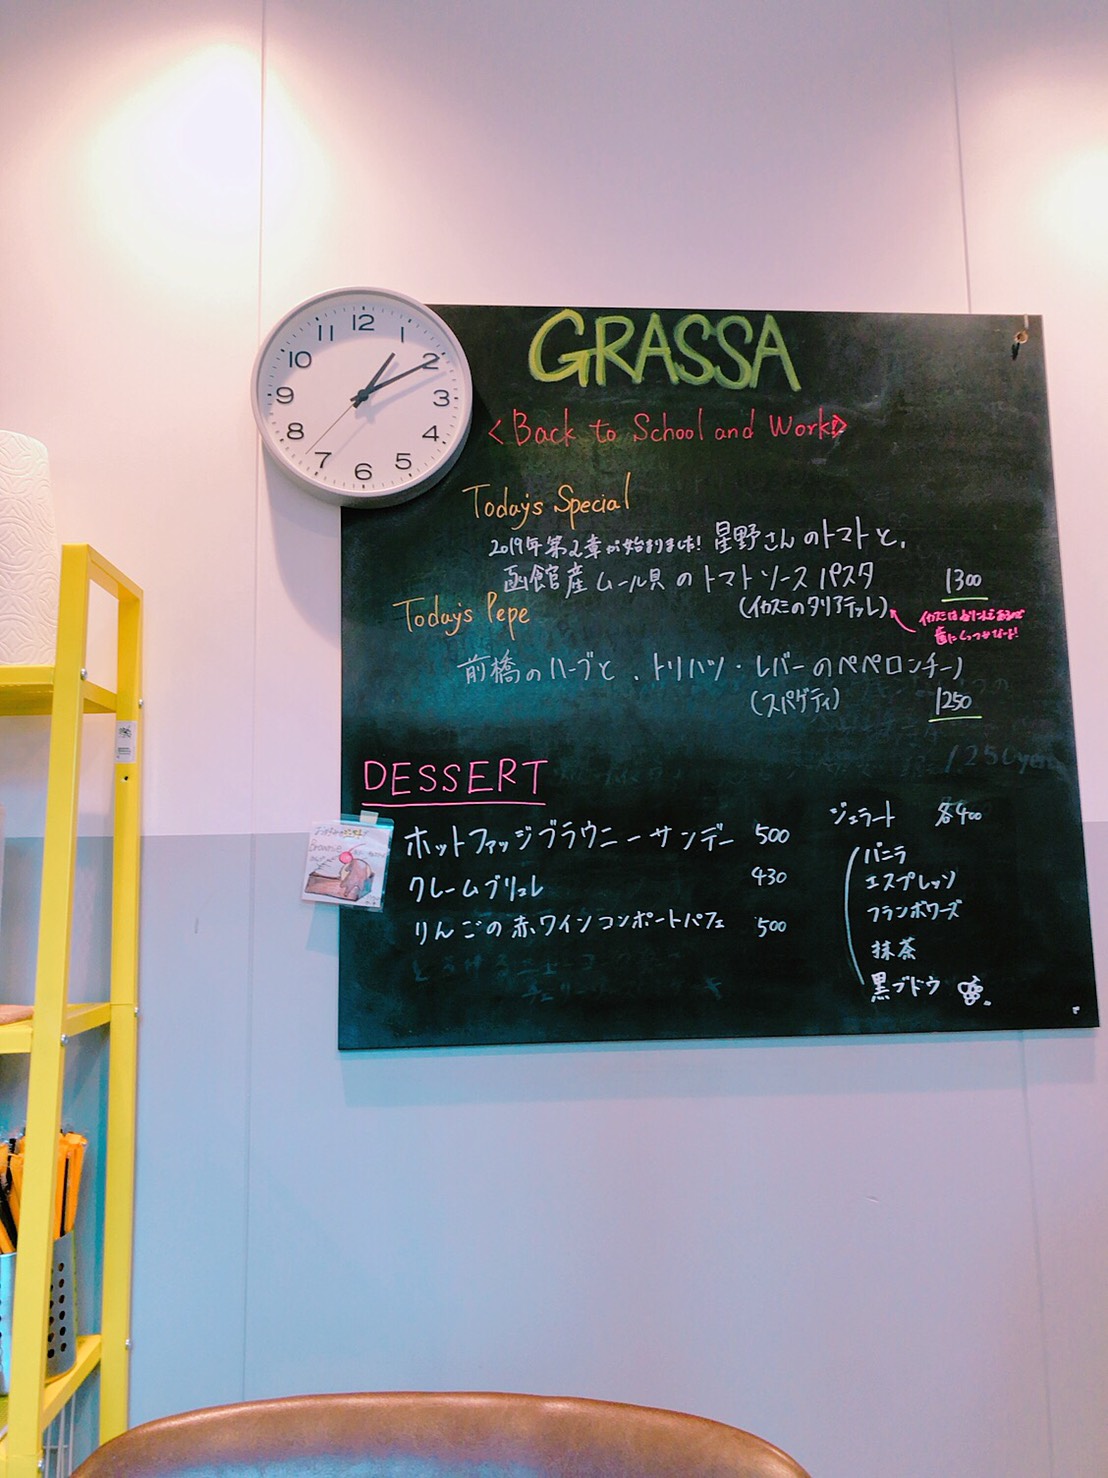 GRASSA
<Back to School and Work!>
Today's Special
2019年第2章が始まりました! 星野さんのトマトと、
函館産ムール貝のトマトソースパスタ 1300
(イカスミのタリアテッレ)
イカスミはねりこんであるので
歯にくっつかないよ!
Today's Pepe
前橋のハーブと、トリハツ・レバーのペペロンチーノ
(スパゲティ) 1250
DESSERT
ホットファッジブラウニーサンデー 500
クレームブリュレ 430
りんごの赤ワインコンポートパフェ 500
ジェラート 各400
バニラ
エスプレッソ
フランボワーズ
抹茶
黒ブドウ
12 1 2 3 4 5 6 7 8 9 10 11